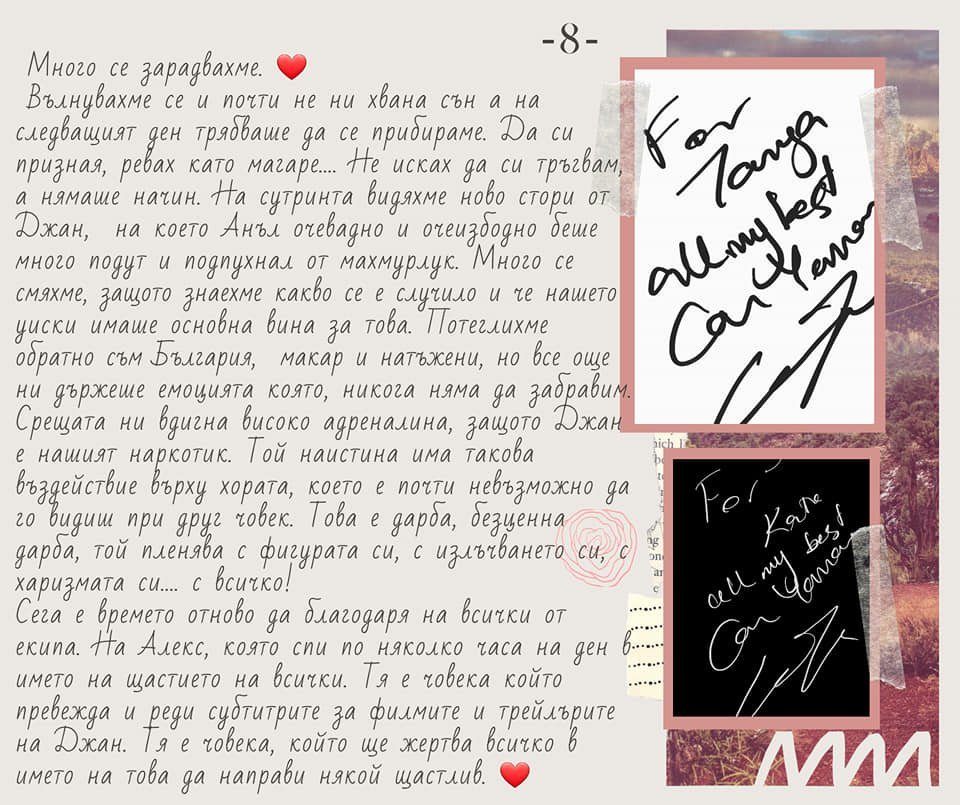 -8-
Много се зарадвахме. ❤️
Вълнувахме се и почти не ни хвана сън а на
следващият ден трябваше да се прибираме. Да си
призная, ревах като магаре.... Не исках да си тръгвам,
а нямаше начин. На сутринта видяхме ново стори от
Джан, на което Анъл очевадно и очеизбодно беше
много подут и подпухнал от махмурлук. Много се
смяхме, защото знаехме какво се е случило и че нашето
уиски имаше основна вина за това. Потеглихме
обратно към България, макар и натъжени, но все още
ни държеше емоцията която, никога няма да забравим.
Срещата ни вдигна високо адреналина, защото Джан
е нашият наркотик. Той наистина има такова
въздействие върху хората, което е почти невъзможно да
го видиш при друг човек. Това е дарба, безценна
дарба, той пленява с фигурата си, с излъчването си, с
харизмата си.... с всичко!
Сега е времето отново да благодаря на всички от
екипа. На Алекс, която спи по няколко часа на ден в
името на щастието на всички. Тя е човека който
превежда и реди субтитрите за филмите и трейлърите
на Джан. Тя е човека, който ще жертва всичко в
името на това да направи някой щастлив. ❤️
For
Tanya
all my best
Can Yaman
which
For
Katia
all my best
Can Yaman